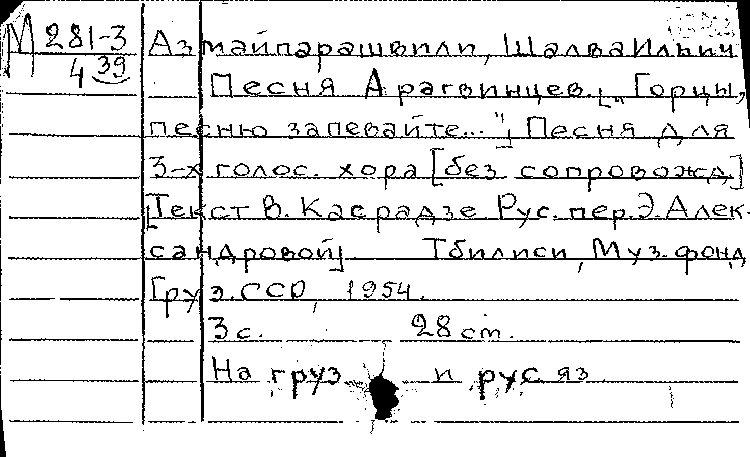 М 281-3
4 39
Азмайпарашвили, Шалва Ильич
Песня Арагвинцев. ["Горцы,
песню запевайте..."] Песня для
3-х голос. хора [без сопровожд]
[Текст В. Касрадзе Рус. пер. Э. Алек-
сандровой] Тбилиси, Муз. фонд
Груз. ССР, 1954.
3 с. 28 cm.
На груз и рус яз